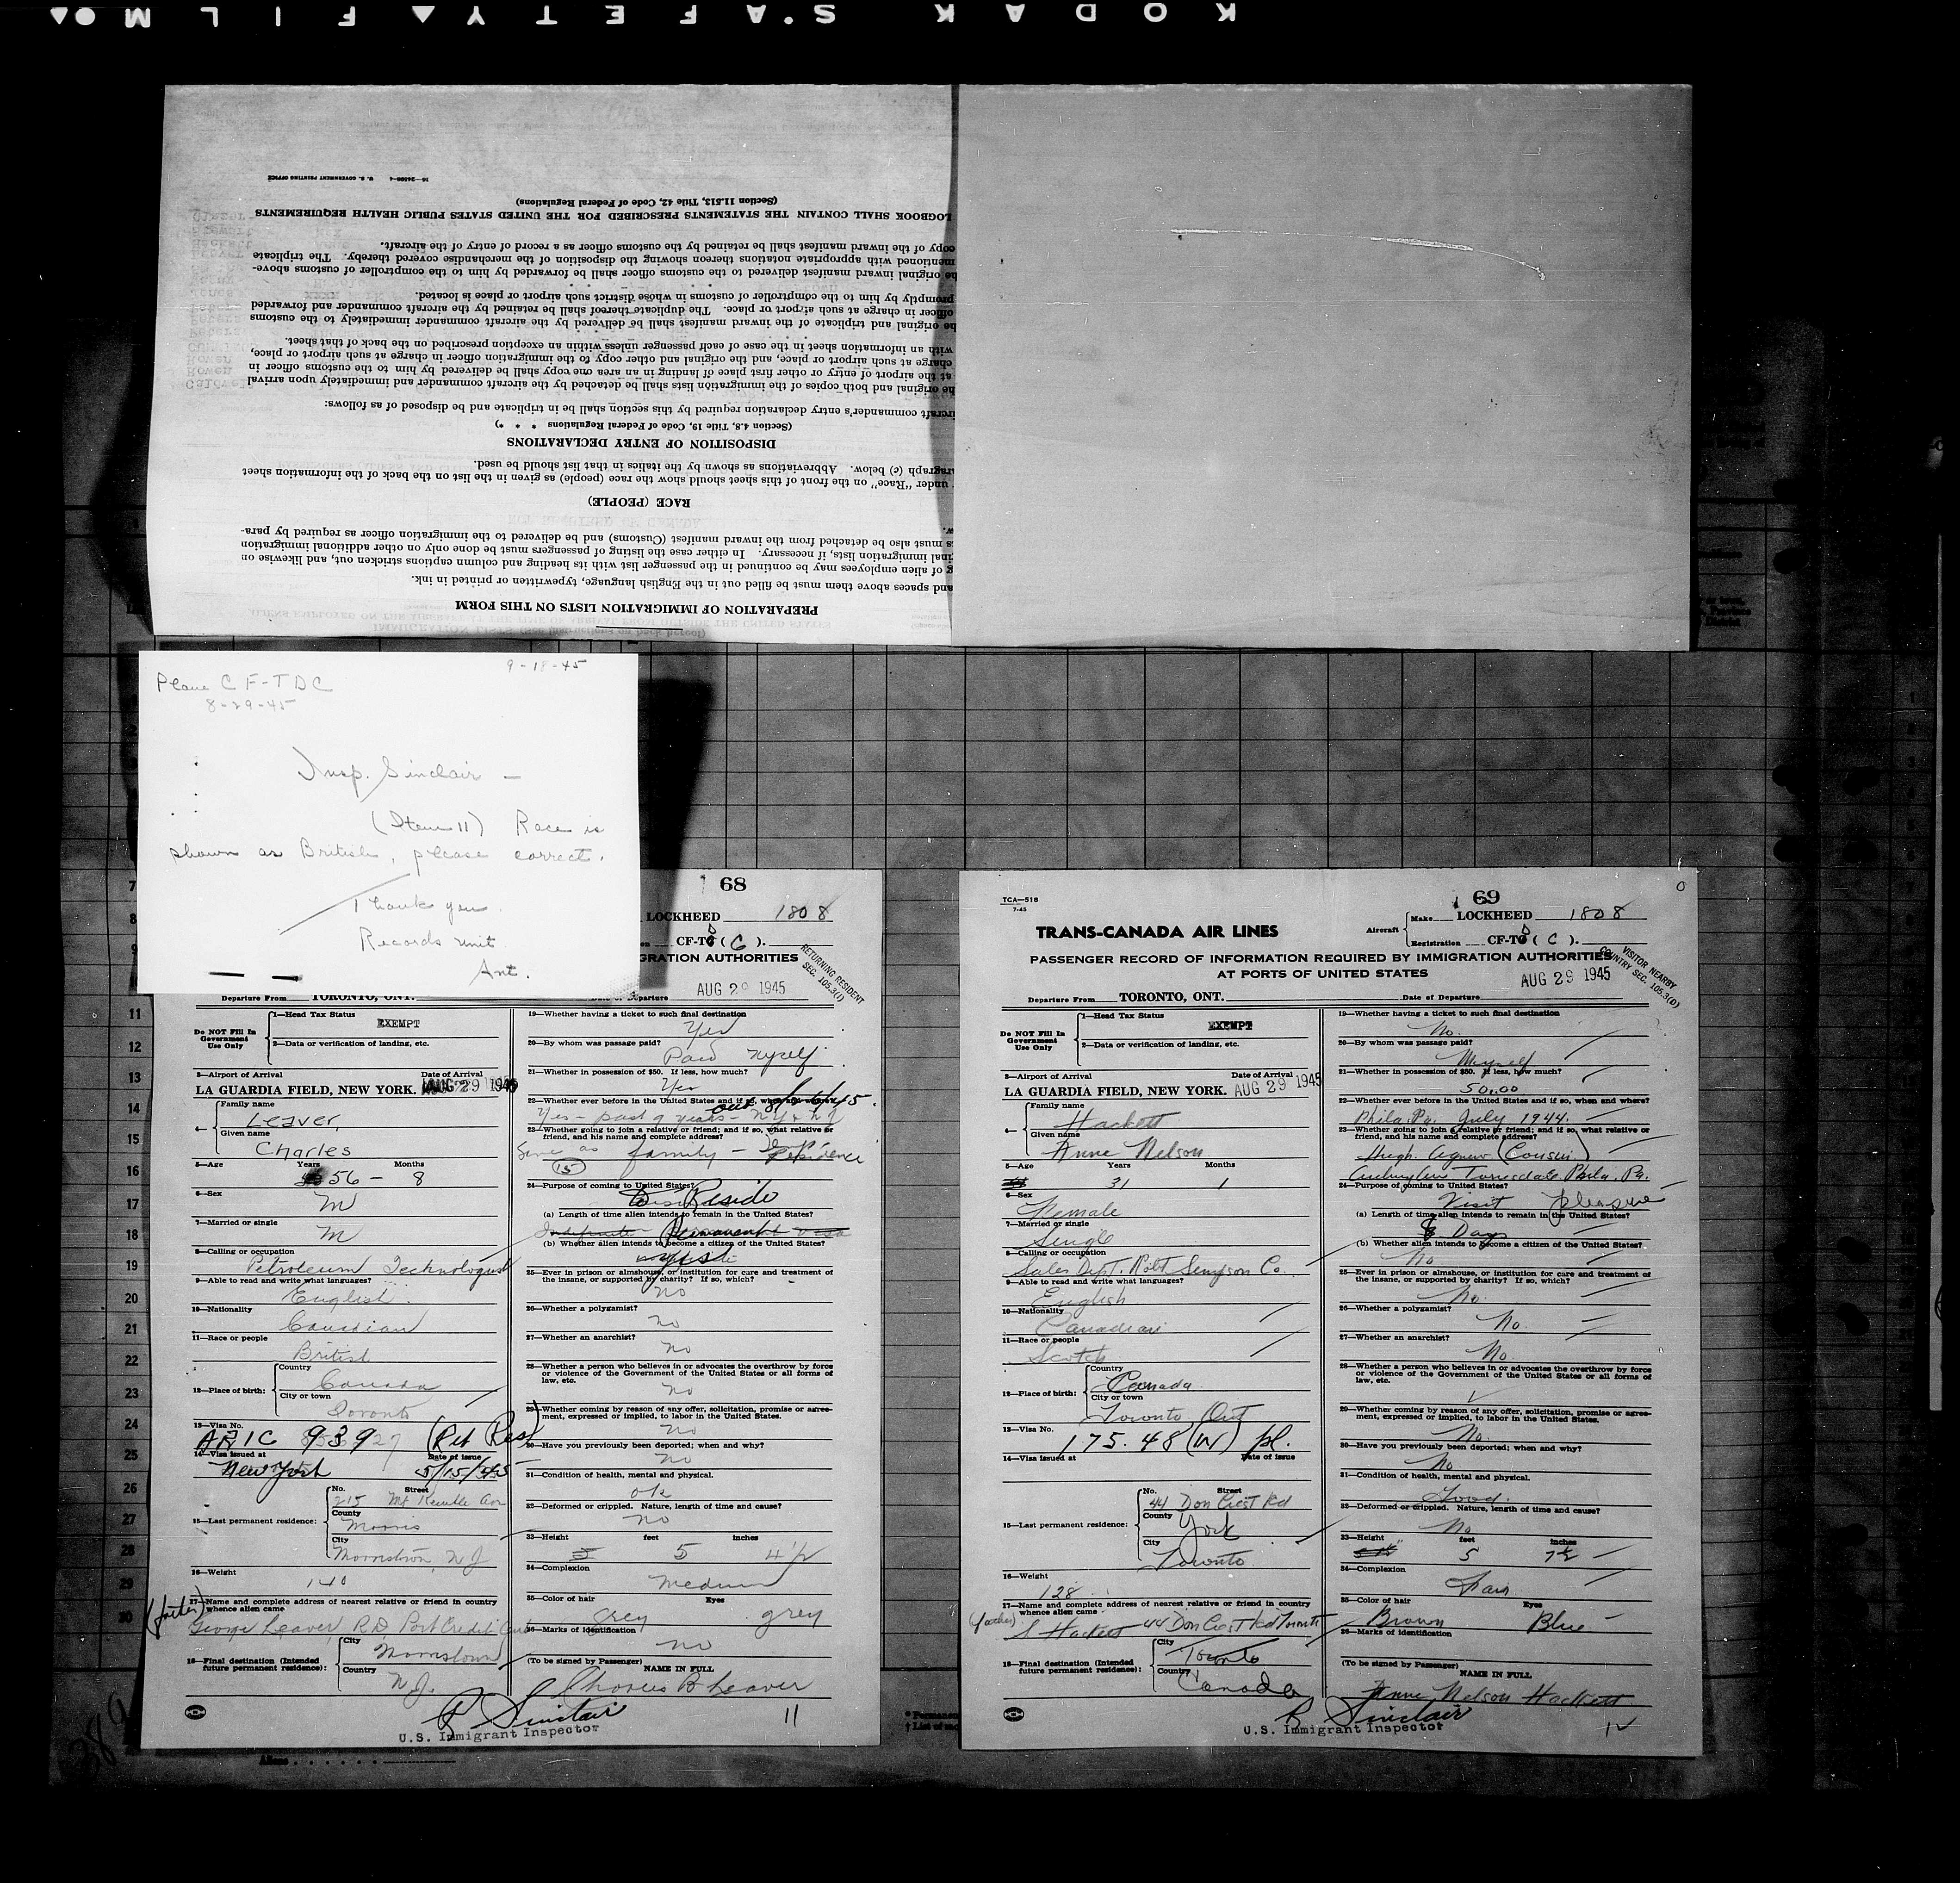 KODAK SAFETY FILM
PREPARATION OF IMMIGRATION LISTS ON THIS FORM
and spaces above them must be filled out in the English language, typewritten or printed in ink.
of alien employees may be continued in the passenger list with its heading and column captions stricken out, and likewise on
immigration lists, if necessary. In either case the listing of passengers must be done only on other additional immigration
must also be detached from the inward manifest (Customs) and be delivered to the immigration officer as required by para-
RACE (PEOPLE)
under "Race" on the front of this sheet should show the race (people) as given in the list on the back of the information sheet
(c) below. Abbreviations as shown by the italics in that list should be used.
DISPOSITION OF ENTRY DECLARATIONS
(Section 4.8, Title 19, Code of Federal Regulations * * *)
commander's entry declaration required by this section shall be in triplicate and be disposed of as follows:
original and both copies of the immigration lists shall be detached by the aircraft commander and immediately upon arrival
at the airport of entry or other first place of landing in an area one copy shall be delivered by him to the customs officer in
charge at such airport or place, and the original and other copy to the immigration officer in charge at such airport or place,
with an information sheet in the case of each passenger unless within an exception prescribed on the back of that sheet.
original and triplicate of the inward manifest shall be delivered by the aircraft commander immediately to the customs
officer in charge at such airport or place. The duplicate thereof shall be retained by the aircraft commander and forwarded
promptly by him to the comptroller of customs in whose district such airport or place is located.
original inward manifest delivered to the customs officer shall be forwarded by him to the comptroller of customs above-
mentioned with appropriate notations thereon showing the disposition of the merchandise covered thereby. The triplicate
copy of the inward manifest shall be retained by the customs officer as a record of entry of the aircraft.
LOGBOOK SHALL CONTAIN THE STATEMENTS PRESCRIBED FOR THE UNITED STATES PUBLIC HEALTH REQUIREMENTS
(Section 11.513, Title 42, Code of Federal Regulations)
U. S. GOVERNMENT PRINTING OFFICE
9-18-45
Plane CF-TDC
8-29-45
Insp. Sinclair -
(Item 11) Race is
shown as British, please correct.
Thank you
Records unit
Ant.
68
LOCKHEED 1808
CF-T (C).
GRATION AUTHORITIES
RETURNING RESIDENT
SEC. 105.3(I)
AUG 29 1945
Departure From TORONTO, ONT. Date of Departure
Do NOT Fill In Government Use Only
1—Head Tax Status
EXEMPT
2—Data or verification of landing, etc.
3—Airport of Arrival Date of Arrival
LA GUARDIA FIELD, NEW YORK. AUG 29 1945
4— Family name
Leaver,
Given name
Charles
5—Age Years Months
56 - 8
6—Sex
M
7—Married or single
M
8—Calling or occupation
Petroleum Technologist
9—Able to read and write what languages?
English
10—Nationality
Canadian
11—Race or people
British
12—Place of birth: Country
Canada
City or town
Toronto
13—Visa No.
(Ret Res)
14—Visa issued at Date of issue
New York 5/15/45
15—Last permanent residence: No. Street
215 Mt Kemble Ave
County
Morris
City
Morristown, N J
16—Weight
140
17—Name and complete address of nearest relative or friend in country
whence alien came
George Leaver, RD, Port Credit
18—Final destination (Intended
future permanent residence): City
Morristown
Country
N J.
19—Whether having a ticket to such final destination
Yes
20—By whom was passage paid?
Paid myself
21—Whether in possession of $50. If less, how much?
Yes
22—Whether ever before in the United States and if so, when and where?
Yes - past 9 years - NY & NJ
23—Whether going to join a relative or friend; and if so, what relative or
friend, and his name and complete address?
family - Residence
24—Purpose of coming to United States?
Reside
(a) Length of time alien intends to remain in the United States?
Permanent
(b) Whether alien intends to become a citizen of the United States?
yes
25—Ever in prison or almshouse, or institution for care and treatment of
the insane, or supported by charity? If so, which?
no
26—Whether a polygamist?
no
27—Whether an anarchist?
no
28—Whether a person who believes in or advocates the overthrow by force
or violence of the Government of the United States or all forms of
law, etc.
no
29—Whether coming by reason of any offer, solicitation, promise or agree-
ment, expressed or implied, to labor in the United States.
no
30—Have you previously been deported; when and why?
no
31—Condition of health, mental and physical.
ok
32—Deformed or crippled. Nature, length of time and cause?
no
33—Height feet inches
5 4 1/2
34—Complexion
medium
35—Color of hair Eyes
Grey grey
36—Marks of identification
no
(To be signed by Passenger) NAME IN FULL
Charles B Leaver
R Sinclair
U.S. Immigrant Inspector
11
TCA—518
7-45
69
TRANS-CANADA AIR LINES
Aircraft Make LOCKHEED 1808
Registration CF-T (C).
PASSENGER RECORD OF INFORMATION REQUIRED BY IMMIGRATION AUTHORITIES
AT PORTS OF UNITED STATES
VISITOR NEARBY
COUNTRY SEC. 105.3(D)
AUG 29 1945
Departure From TORONTO, ONT. Date of Departure
Do NOT Fill In Government Use Only
1—Head Tax Status
EXEMPT
2—Data or verification of landing, etc.
3—Airport of Arrival Date of Arrival
LA GUARDIA FIELD, NEW YORK. AUG 29 1945
4— Family name
Hackett
Given name
Anne Nelson
5—Age Years Months
31 1
6—Sex
Female
7—Married or single
Single
8—Calling or occupation
Sales Dept. Robt Simpson Co.
9—Able to read and write what languages?
English
10—Nationality
Canadian
11—Race or people
Scotch
12—Place of birth: Country
Canada
City or town
Toronto, Ont
13—Visa No.
175.48 (W) pl.
14—Visa issued at Date of issue
15—Last permanent residence: No. Street
44 Don Crest Rd
County
York
City
Toronto
16—Weight
128
17—Name and complete address of nearest relative or friend in country
whence alien came
S Hackett 44 Don Crest Rd Toronto
18—Final destination (Intended
future permanent residence): City
Toronto
Country
Canada
19—Whether having a ticket to such final destination
No.
20—By whom was passage paid?
Myself
21—Whether in possession of $50. If less, how much?
50.00
22—Whether ever before in the United States and if so, when and where?
Phila. Pa. July 1944.
23—Whether going to join a relative or friend; and if so, what relative or
friend, and his name and complete address?
Hugh Agnew (Cousin)
Torresdale Phila. Pa.
24—Purpose of coming to United States?
Visit pleasure
(a) Length of time alien intends to remain in the United States?
8 Days
(b) Whether alien intends to become a citizen of the United States?
No
25—Ever in prison or almshouse, or institution for care and treatment of
the insane, or supported by charity? If so, which?
No.
26—Whether a polygamist?
No.
27—Whether an anarchist?
No.
28—Whether a person who believes in or advocates the overthrow by force
or violence of the Government of the United States or all forms of
law, etc.
29—Whether coming by reason of any offer, solicitation, promise or agree-
ment, expressed or implied, to labor in the United States.
No.
30—Have you previously been deported; when and why?
No
31—Condition of health, mental and physical.
Good.
32—Deformed or crippled. Nature, length of time and cause?
No
33—Height feet inches
5 7½
34—Complexion
Fair
35—Color of hair Eyes
Brown Blue
36—Marks of identification
(To be signed by Passenger) NAME IN FULL
Anne Nelson Hackett
R Sinclair
U.S. Immigrant Inspector
12